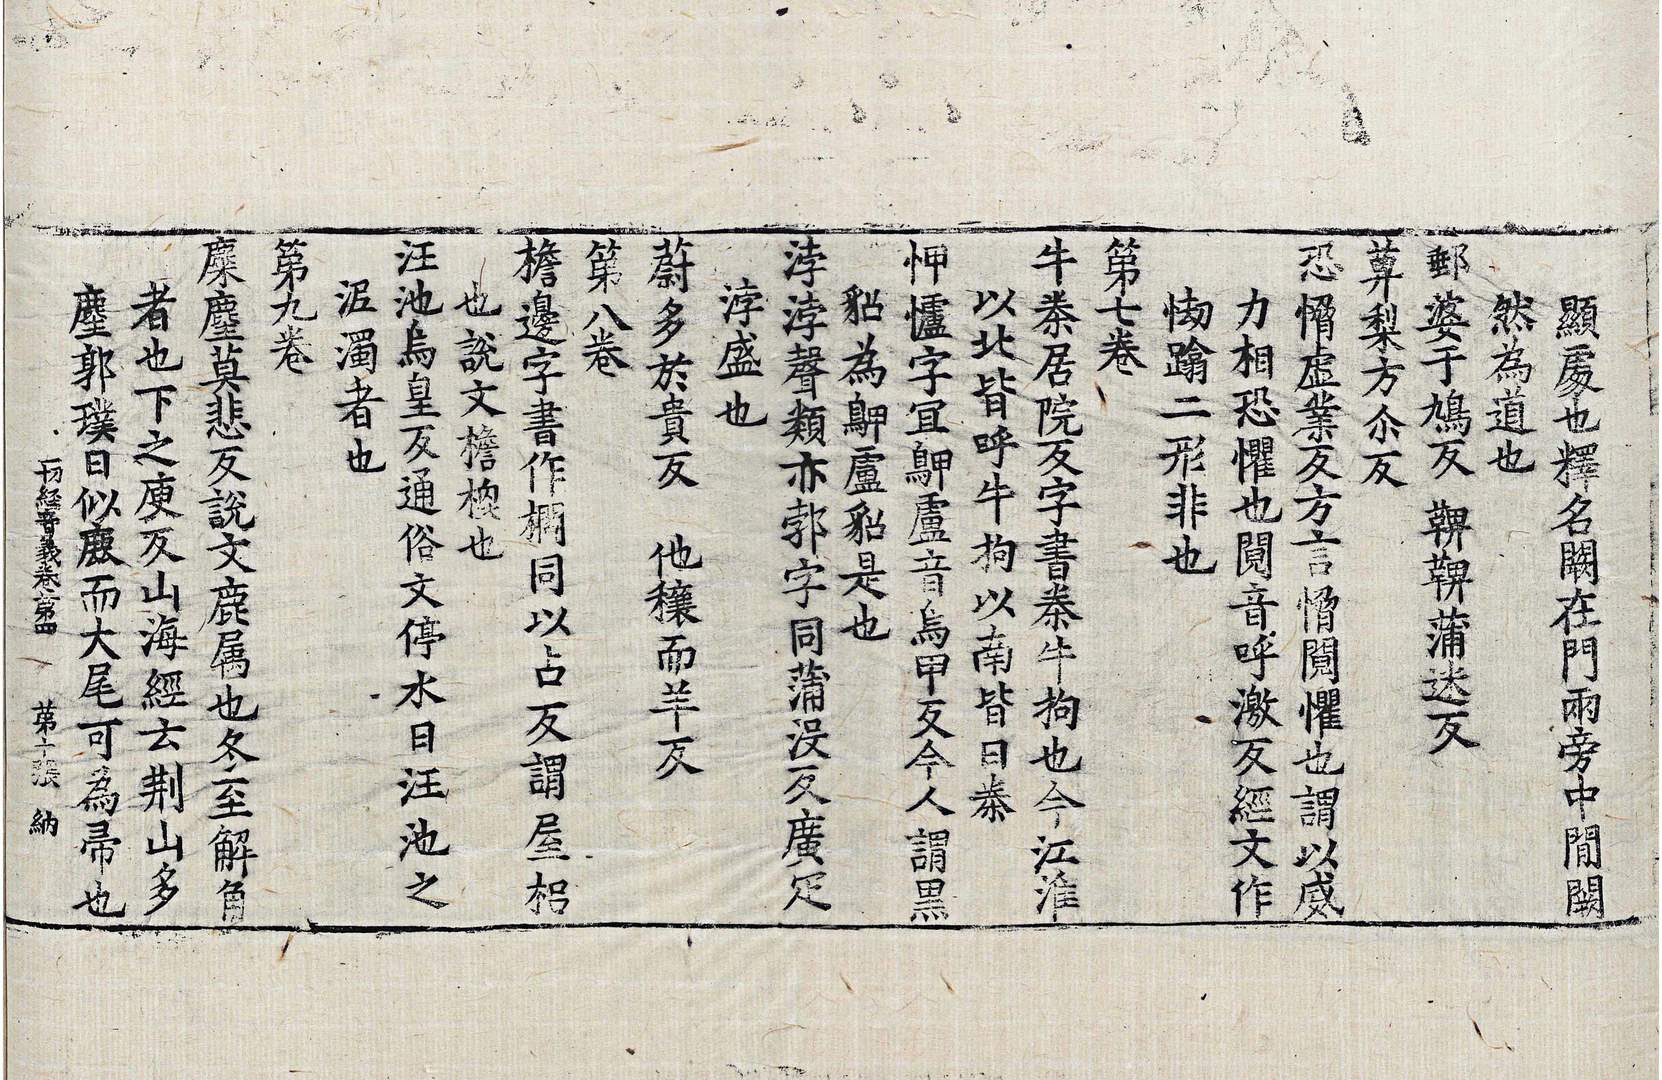 顯䖏也釋名闕在門兩旁中間闕
然為道也
郵婆于鳩反　鞞鞞蒲迷反
萆梨方尒反
恐愶虛業反方言愶閱懼也謂以威
力相恐懼也閱音呼激反經文作
㤼蹹二形非也
第七卷
牛桊居院反字書桊牛拘也今江淮
以北皆呼牛拘以南皆曰桊
㤉㠠字宜鴨盧音烏甲反今人謂黑
貂為鴨盧貂是也
浡浡聲類亦郣字同蒲没反廣疋
浡盛也
蔚多於貴反　他穰而羊反
第八卷
檐邊字書作櫩同以占反謂屋梠
也說文檐㮰也
汪池烏皇反通俗文停水曰汪汪池之
泥濁者也
第九卷
麋麈莫悲反說文鹿属也冬至解角
者也下之庾反山海經云荆山多
麈郭璞曰似鹿而大尾可為帚也
一切經音義卷第四　第十張　納